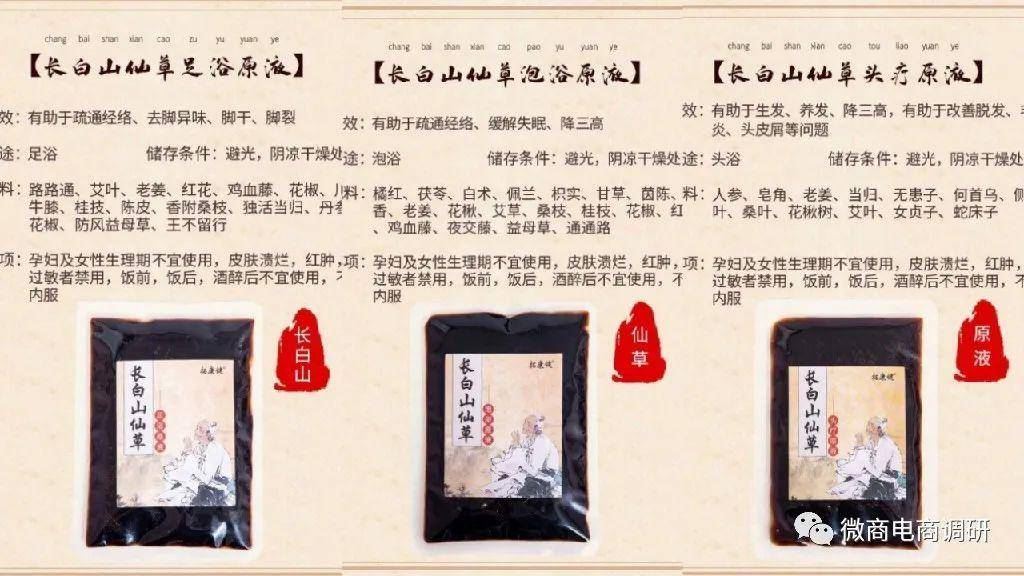 chang bai shan xian cao zu yu yuan ye
【长白山仙草足浴原液】
效：有助于疏通经络、去脚异味、脚干、脚裂
途：足浴 储存条件：避光，阴凉干燥处
料：路路通、艾叶、老姜、红花、鸡血藤、花椒、
牛膝、桂枝、陈皮、香附桑枝、独活当归、丹参
花椒、防风益母草、王不留行
项：孕妇及女性生理期不宜使用，皮肤溃烂，红肿，
过敏者禁用，饭前，饭后，酒醉后不宜使用，不
内服
长白山
拓康健
长白山仙草
chang bai shan xian cao pao yu yuan ye
【长白山仙草泡浴原液】
效：有助于疏通经络、缓解失眠、降三高
途：泡浴 储存条件：避光，阴凉干燥处
料：橘红、茯苓、白术、佩兰、枳实、甘草、茵陈、
香、老姜、花楸、艾草、桑枝、桂枝、花椒、红
、鸡血藤、夜交藤、益母草、通通路
项：孕妇及女性生理期不宜使用，皮肤溃烂，红肿，
过敏者禁用，饭前，饭后，酒醉后不宜使用，不
内服
仙草
拓康健
长白山仙草
chang bai shan xian cao tou liao yuan ye
【长白山仙草头疗原液】
效：有助于生发、养发、降三高，有助于改善脱发、
炎、头皮屑等问题
途：头浴 储存条件：避光，阴凉干燥处
料：人参、皂角、老姜、当归、无患子、何首乌、侧
叶、桑叶、花楸树、艾叶、女贞子、蛇床子
项：孕妇及女性生理期不宜使用，皮肤溃烂，红肿，
过敏者禁用，饭前，饭后，酒醉后不宜使用，不
内服
原液
拓康健
长白山仙草
微商电商调研